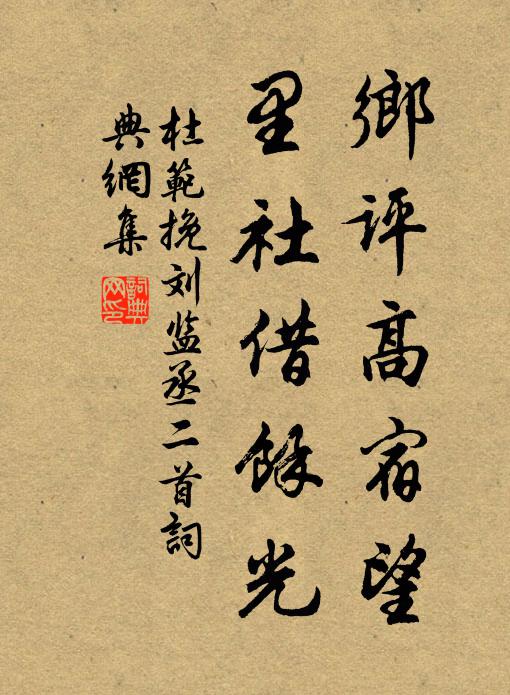 鄉评高宿望
里社借餘光
杜範挽刘监丞二首詞
典網集
詞典網印